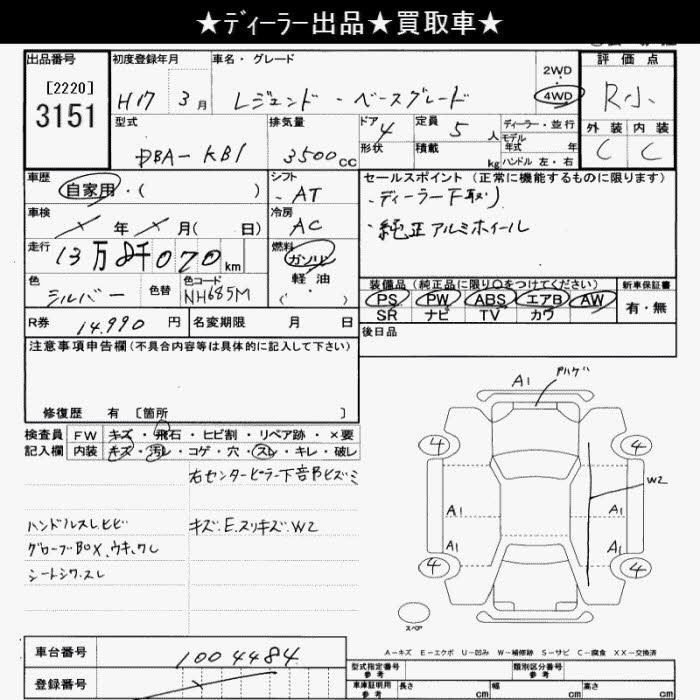 ★ディーラー出品★買取車★
出品番号
[2220]
3151
初度登録年月
H17 3月
車名・グレード
レジェンド・ベースグレード
2WD
4WD
評価点
R小
外装 内装
C C
型式
DBA-KB1
排気量
3500cc
ドア 4
形状
定員 5 人
積載 kg
ディーラー・並行
モデル
年式 年
ハンドル 左・右
車歴
自家用・( )
車検
年 月( 日)
走行
13万8千070km
色
シルバー
色替
色コード
NH685M
シフト
AT
冷房
AC
燃料
ガソリン
軽油
( )
セールスポイント (正常に機能するものに限ります)
・ディーラー下取り
・純正アルミホイール
装備品 (純正品に限り〇をつけてください)
PS PW ABS エアB AW
SR ナビ TV カワ
新車保証書
有・無
R券 14.990 円
名変期限 月 日
後日品
注意事項申告欄(不具合内容等は具体的に記入して下さい)
修復歴 有 〔箇所 〕
検査員
記入欄
FW キズ・飛石・ヒビ割・リペア跡・×要
内装 キズ・汚レ・コゲ・穴・スレ・キレ・破レ
右センターピラー下部ヒズミ
ハンドルスレヒビ
キズ.E.スリキズ.W2
グローブBOX.ウキ.ワレ
シートシワ.スレ
A1
4 4
W2
A1 A1
A1 A1
4 4
スペア
A-キズ E-エクボ U-凹み W-補修跡 S-サビ C-腐食 XX-交換済
車台番号
1004484
登録番号
型式指定番号
参考
類別区分番号
参考
車庫証明用
参考
長さ cm 幅 cm 高さ cm